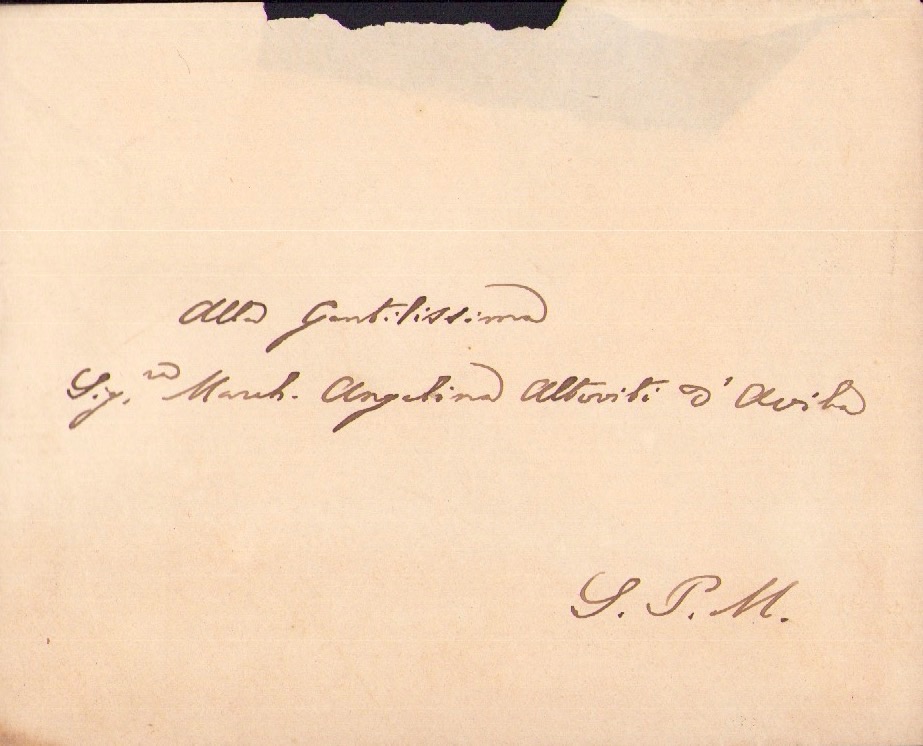 Alla Gentilissima
Sig.ra March. Angelina Altoviti d'Avila
S. P. M.